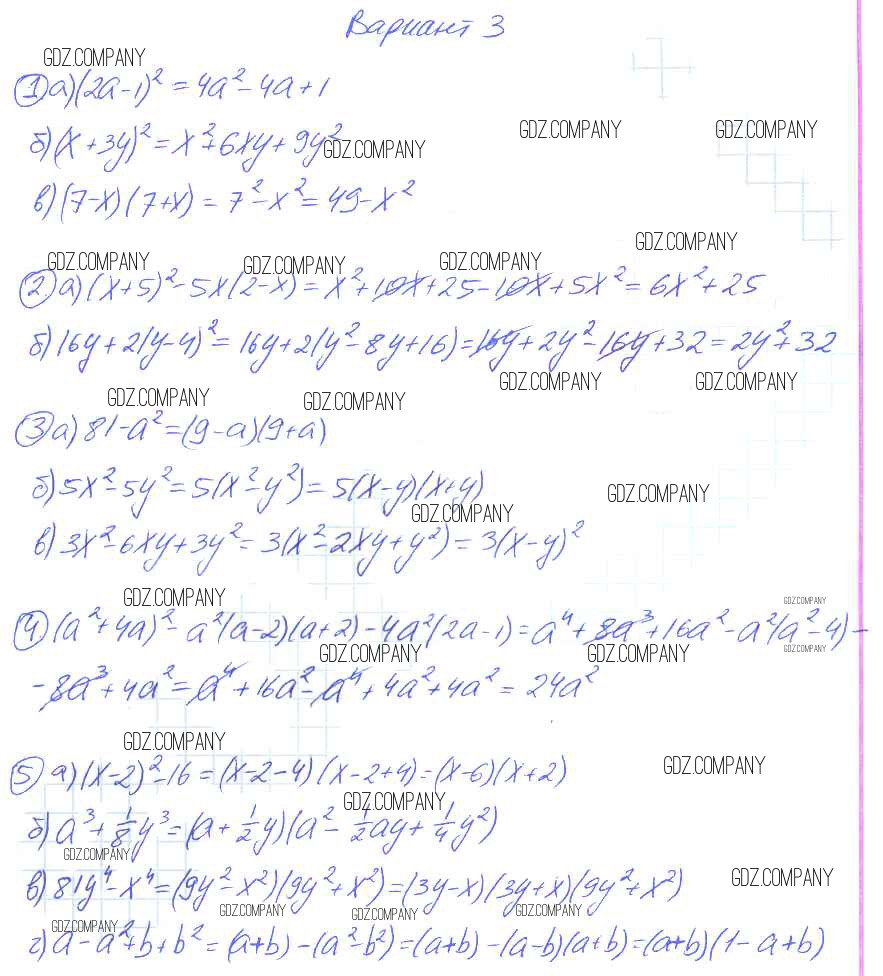 Вариант 3
GDZ.COMPANY
① а) (2a-1)² = 4a² - 4a + 1
GDZ.COMPANY GDZ.COMPANY
б) (x + 3y)² = x² + 6xy + 9y²
GDZ.COMPANY
в) (7-x) (7+x) = 7² - x² = 49 - x²
GDZ.COMPANY
GDZ.COMPANY GDZ.COMPANY GDZ.COMPANY
② а) (x+5)² - 5x(2-x) = x² + 10x + 25 - 10x + 5x² = 6x² + 25
б) 16y + 2(y-4)² = 16y + 2(y² - 8y + 16) = 16y + 2y² - 16y + 32 = 2y² + 32
GDZ.COMPANY GDZ.COMPANY
GDZ.COMPANY GDZ.COMPANY
③ а) 81 - a² = (9-a)(9+a)
б) 5x² - 5y² = 5(x² - y²) = 5(x-y)(x+y)
GDZ.COMPANY
GDZ.COMPANY
в) 3x² - 6xy + 3y² = 3(x² - 2xy + y²) = 3(x-y)²
GDZ.COMPANY GDZ.COMPANY
④ (a² + 4a)² - a²(a-2)(a+2) - 4a²(2a-1) = a⁴ + 8a³ + 16a² - a²(a² - 4) -
GDZ.COMPANY GDZ.COMPANY GDZ.COMPANY
- 8a³ + 4a² = a⁴ + 16a² - a⁴ + 4a² + 4a² = 24a²
GDZ.COMPANY
⑤ а) (x-2)² - 16 = (x-2-4) (x-2+4) = (x-6)(x+2)
GDZ.COMPANY
GDZ.COMPANY
б) a³ + 1/8 y³ = (a + 1/2 y)(a² - 1/2 ay + 1/4 y²)
GDZ.COMPANY
в) 81y⁴ - x⁴ = (9y² - x²)(9y² + x²) = (3y-x)(3y+x)(9y² + x²)
GDZ.COMPANY
GDZ.COMPANY GDZ.COMPANY GDZ.COMPANY
GDZ.COMPANY
г) a - a² + b + b² = (a+b) - (a² - b²) = (a+b) - (a-b)(a+b) = (a+b)(1 - a + b)